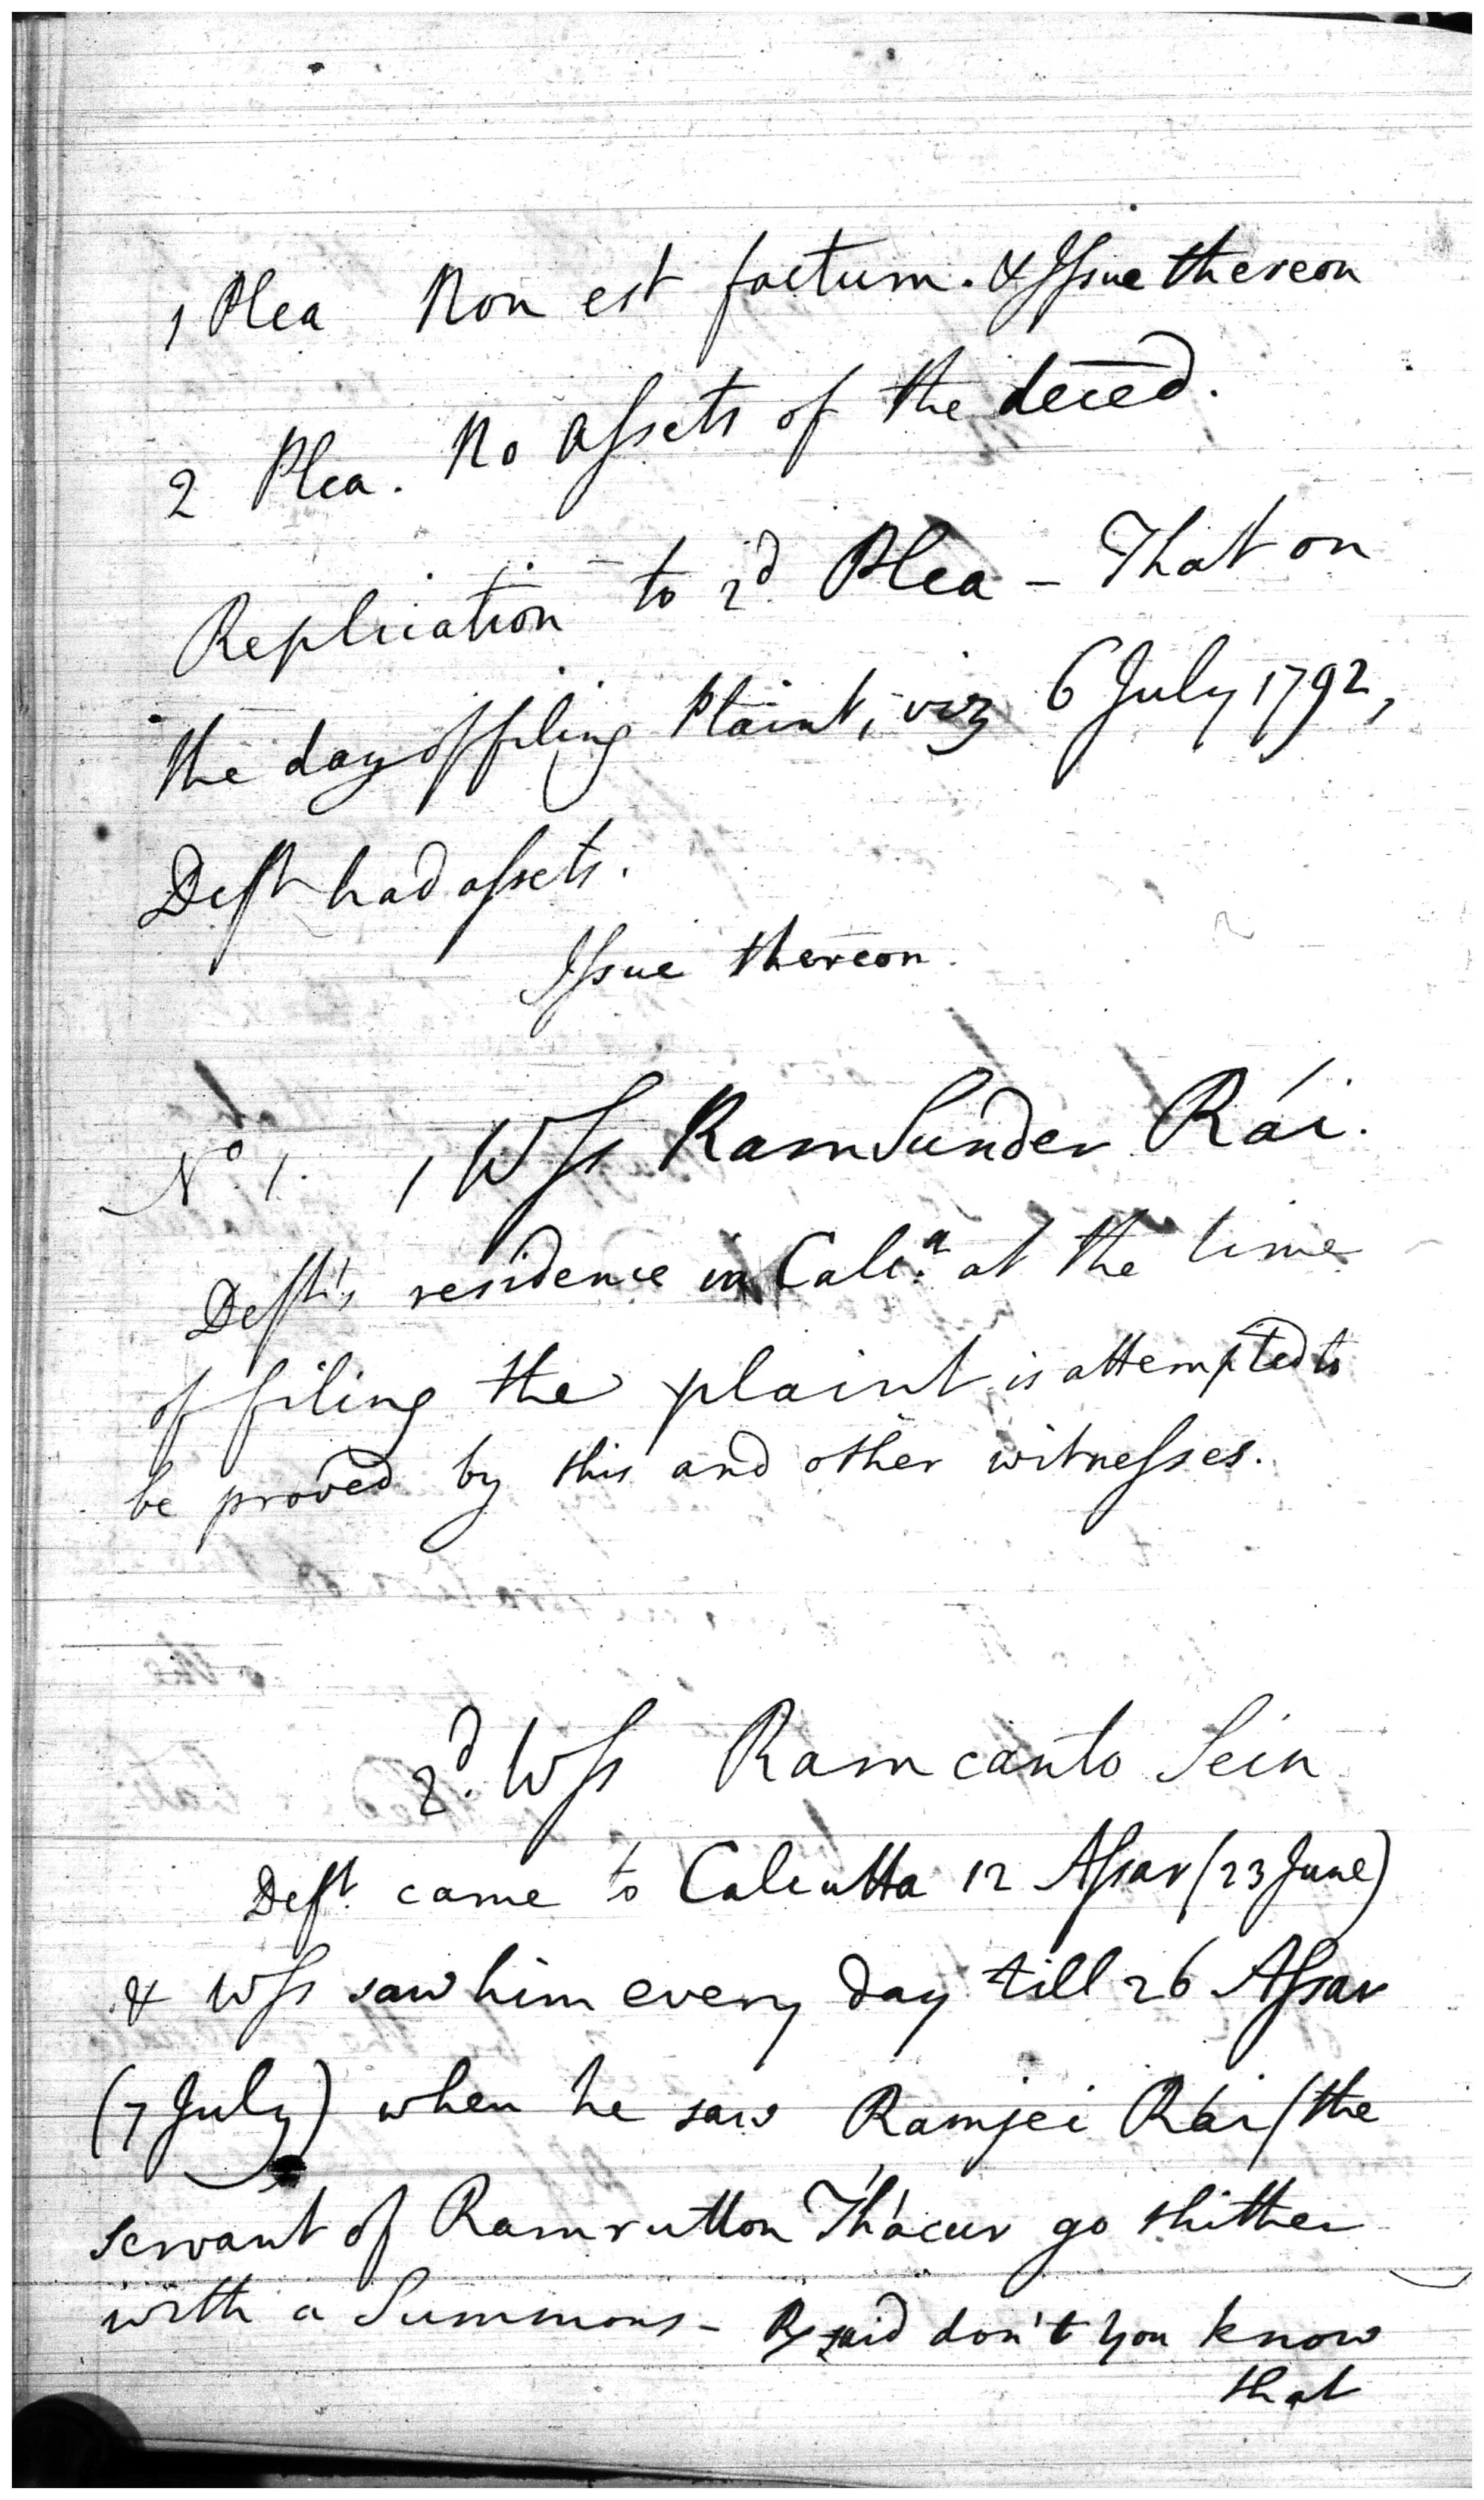 1 Plea Non est factum. & Issue thereon
2 Plea. No Assets of the deced.
Replication to 2d. Plea - That on
the day of filing Plaint, viz 6 July 1792,
Deft had assets.
Issue thereon.
No. 1. 1 Wss RamSunder Rái.
Deft's residence in Calc.a at the time
of filing the plaint is attempted to
be proved by this and other witnesses.
2d. Wss Ramcanto Sein
Deft. came to Calcutta 12 Assar (23 June)
& Wss saw him every day till 26 Assar
(7 July) when he saw Ramjei Rái (the
servant of Ramrutton T'hácur go thither
with a Summons - said don't you know
that